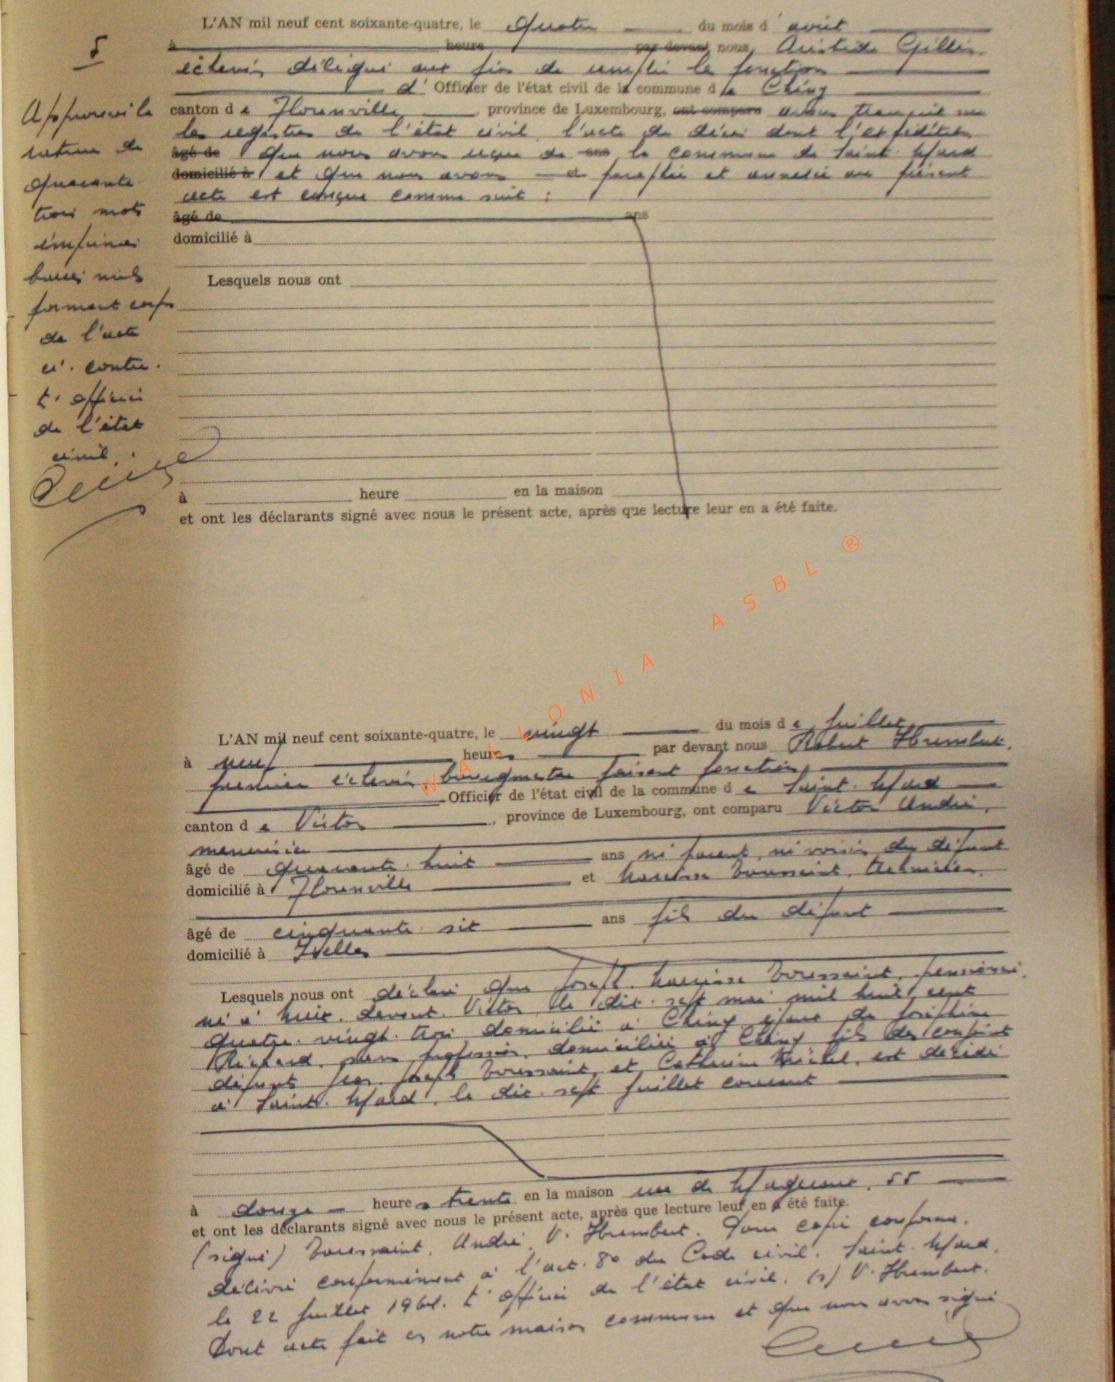 5
L'AN mil neuf cent soixante-quatre, le quatre du mois d'août
à heure par devant nous, Aristide Gillet
échevin délégué aux fins de remplir la fonction
d' Officier de l'état civil de la commune de Chiny
canton de Florenville, province de Luxembourg, ont comparu avons transcrit sur
les registres de l'état civil, l'acte de décès dont l'expédition
âgé de que nous avons reçue de ans la commune de Saint-Mard
domicilié à et que nous avons paraphée et annexée au présent
acte est conçue comme suit :
âgé de ans
domicilié à
Lesquels nous ont
à heure en la maison
et ont les déclarants signé avec nous le présent acte, après que lecture leur en a été faite.
Approuvé la
rature de
quarante
trois mots
imprimés
barrés nuls
formant corps
de l'acte
ci-contre.
L'officier
de l'état
civil.
WALLONIA ASBL ®
L'AN mil neuf cent soixante-quatre, le vingt du mois de juillet
à neuf heures par devant nous Robert Humblet,
premier échevin, bourgmestre faisant fonction,
Officier de l'état civil de la commune de Saint-Mard
canton de Virton, province de Luxembourg, ont comparu Victor André,
menuisier
âgé de quarante-huit ans ni parent, ni voisin du défunt
domicilié à Florenville et Narcisse Toussaint, technicien,
âgé de cinquante six ans fils du défunt
domicilié à Ixelles
Lesquels nous ont déclaré que Joseph Narcisse Toussaint, pensionné,
né à Meix-devant-Virton, le dix-sept mai mil huit cent
quatre-vingt-trois domicilié à Chiny, époux de Joséphine
Richard, sans profession, domiciliée à Chiny, fils des conjoints
défunts Jean Joseph Toussaint, et Catherine Michel, est décédé
à Saint-Mard, le dix-sept juillet courant
à douze heures trente en la maison rue de 55
et ont les déclarants signé avec nous le présent acte, après que lecture leur en a été faite.
(signé) Toussaint, André, V. Humblet. Pour copie conforme,
délivré conformément à l'art. 80 du Code civil. Saint-Mard,
le 22 juillet 1964. L'officier de l'état civil. (s) V. Humblet.
Dont acte fait en notre maison commune et que nous avons signé